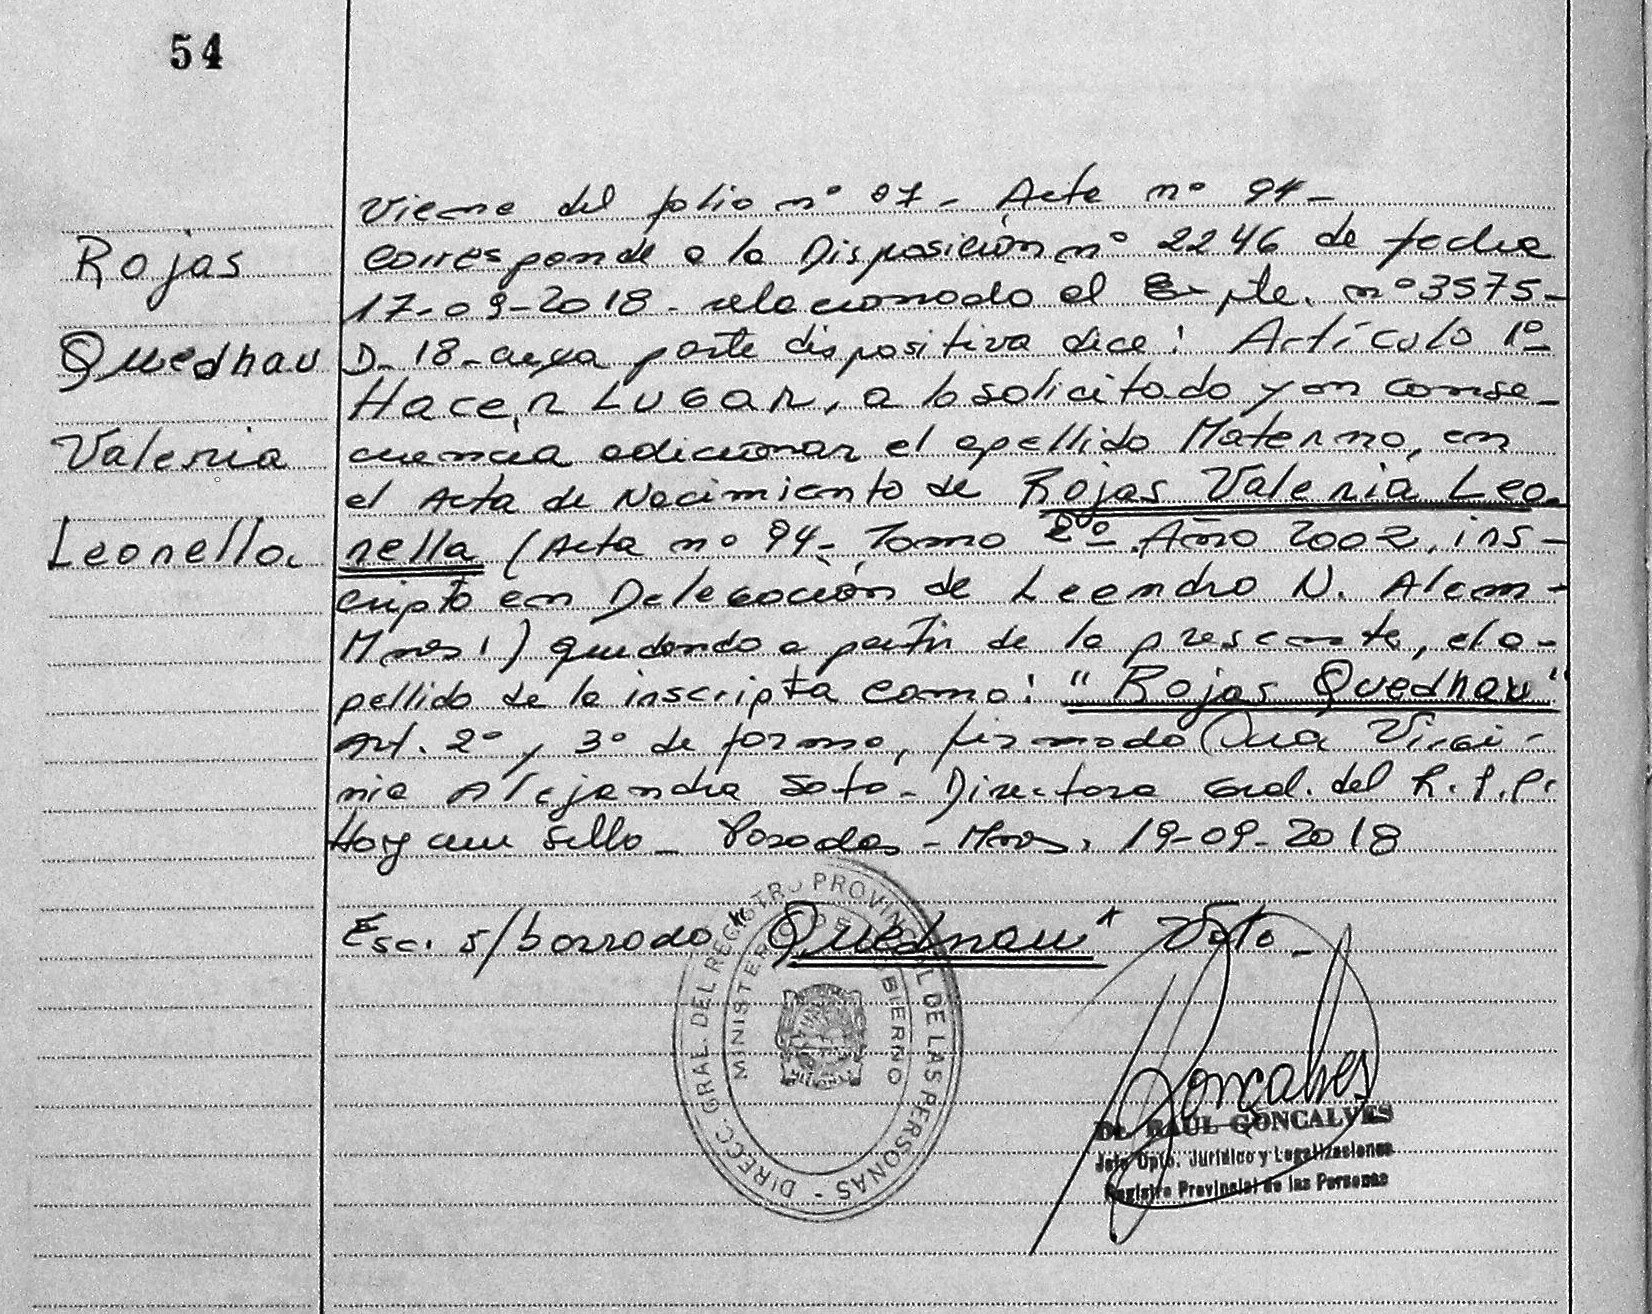 54
Rojas
Quednau
Valeria
Leonella.
Viene del folio nº 97 - Acta nº 94 -
Corresponde a la Disposición nº 2246 de fecha
17-09-2018 - relacionado al Expte. nº 3575-
D-18- cuya parte dispositiva dice: Artículo 1º-
HACER LUGAR, a lo solicitado y en conse-
cuencia adicionar el apellido Materno, en
el Acta de Nacimiento de Rojas Valeria Leo-
nella (Acta nº 94- Tomo 2º- Año 2002, ins-
cripto en Delegación de Leandro N. Alem-
Mnes,) quedando a partir de la presente, el a-
pellido de la inscripta como: "Rojas Quednau"
Art. 2º y 3º de forma, firmado Dra Virgi-
nia Alejandra Soto - Directora Gral. del R.P.P.
Hay un Sello - Posadas - Mnes, 19-09-2018
Esc. s/borrado "Quednau" Vale -
DIRECC. GRAL. DEL REGISTRO PROVINCIAL DE LAS PERSONAS -
MINISTERIO DE GOBIERNO
MISIONES
Goncalves
Dr. RAUL GONCALVES
Jefe Dpto. Jurídico y Legalizaciones
Registro Provincial de las Personas